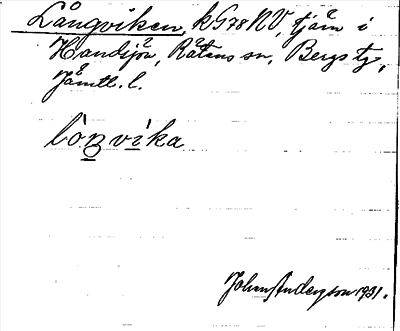 Långviken, kG78NV, tjärn i
Handsjön, Rätans sn, Bergs tg,
Jämtl. l.
lóŋvìka
John Anderson 1931.